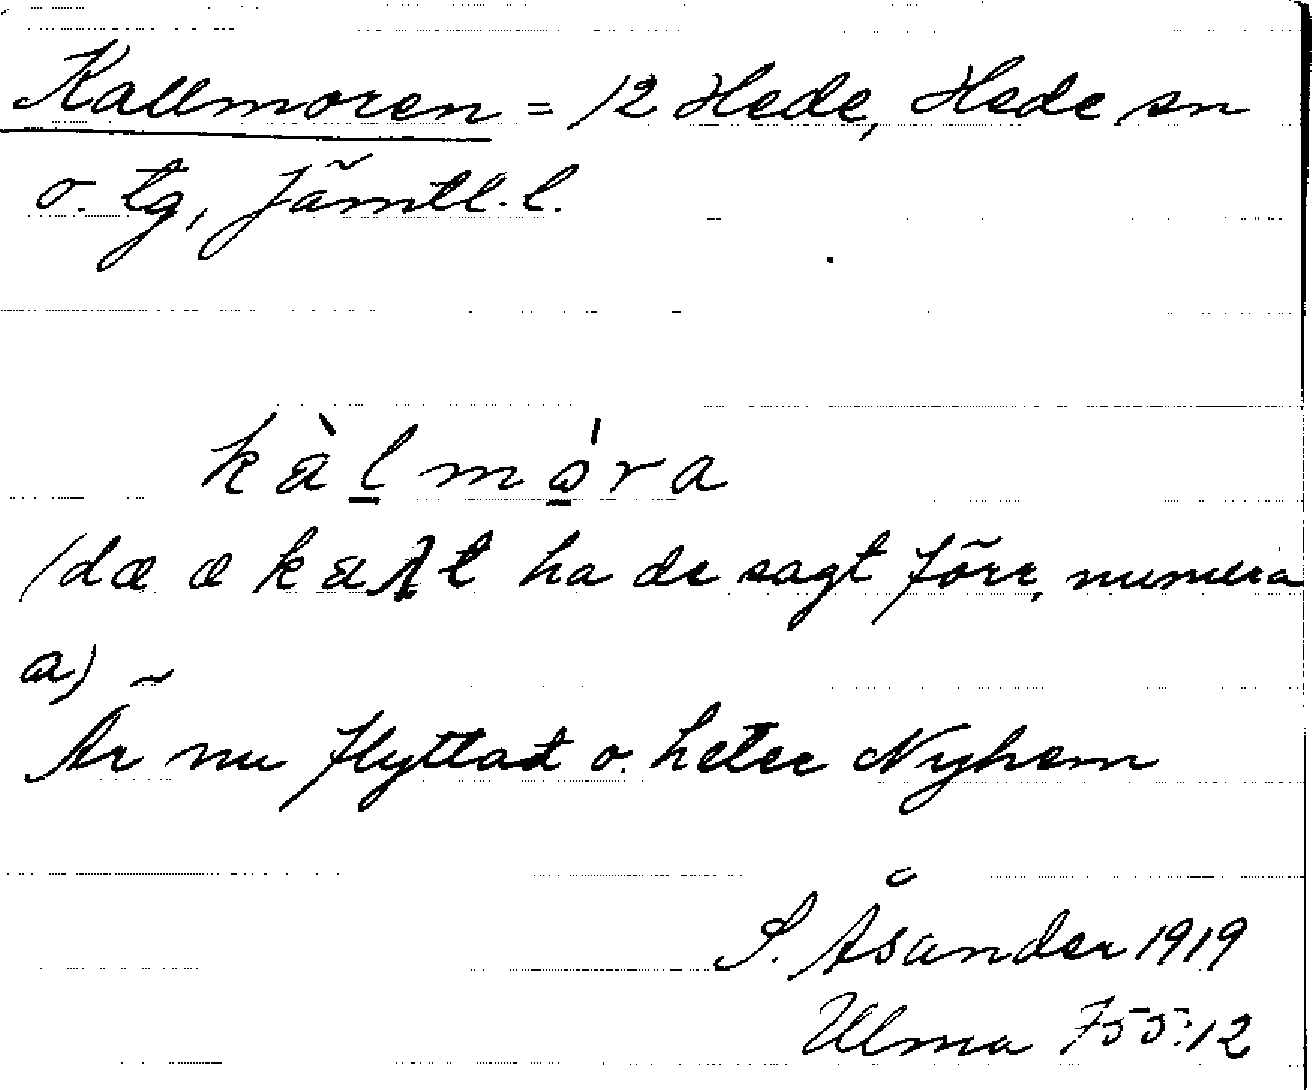 Kallmoren = 12 Hede, Hede sn
o. tg, Jämtl. l.
kàl̠mo̠̍ra
(dæ æ kallt ha de sagt förr, numera
a)
Är nu flyttat o. heter Nyhem
S. Åsander 1919
Ulma 755:12